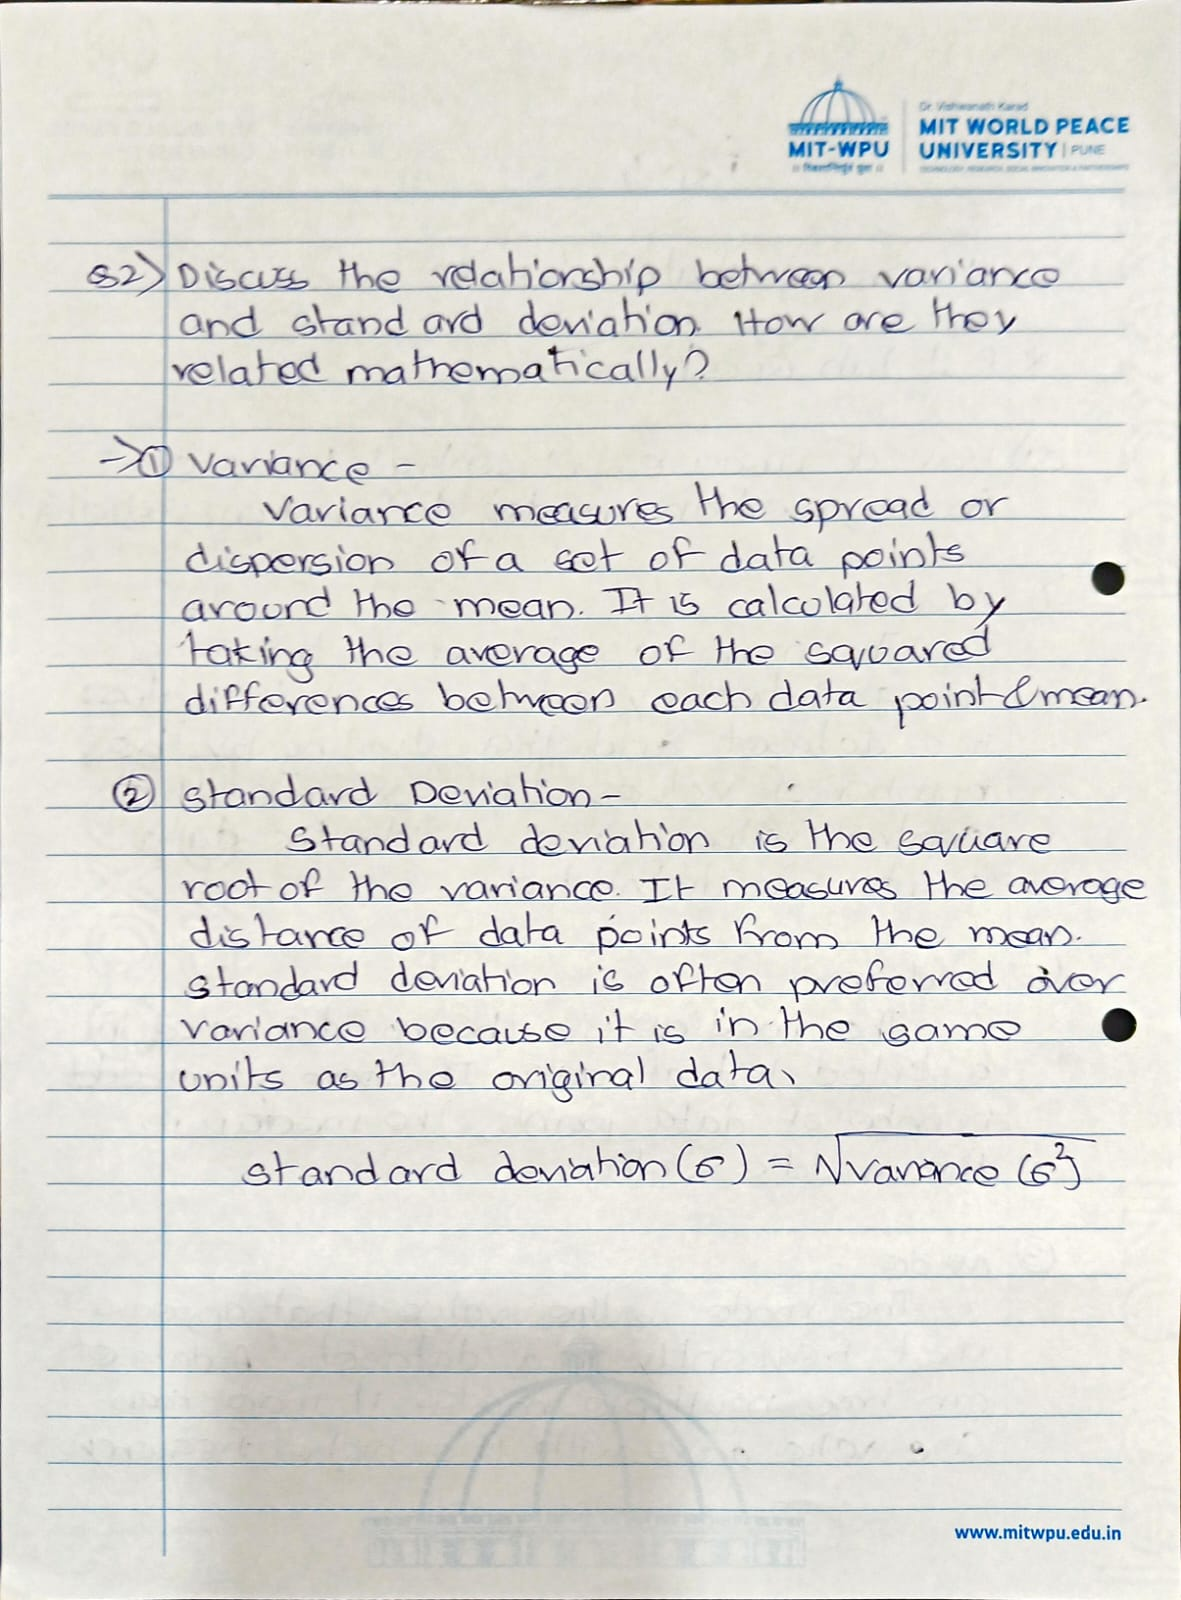 Dr. Vishwanath Karad
MIT WORLD PEACE
UNIVERSITY | PUNE
TECHNOLOGY, RESEARCH, SOCIAL INNOVATION & PARTNERSHIPS
MIT-WPU
॥ विश्वशान्तिर्ध्रुवं ध्रुवा ॥
Q2) Discuss the relationship between variance
and standard deviation. How are they
related mathematically?
→ ① Variance -
Variance measures the spread or
dispersion of a set of data points
around the mean. It is calculated by
taking the average of the squared
differences between each data point & mean.
② Standard Deviation -
Standard deviation is the square
root of the variance. It measures the average
distance of data points from the mean.
Standard deviation is often preferred over
variance because it is in the same
units as the original data.
standard deviation (σ) = √variance (σ²)
www.mitwpu.edu.in